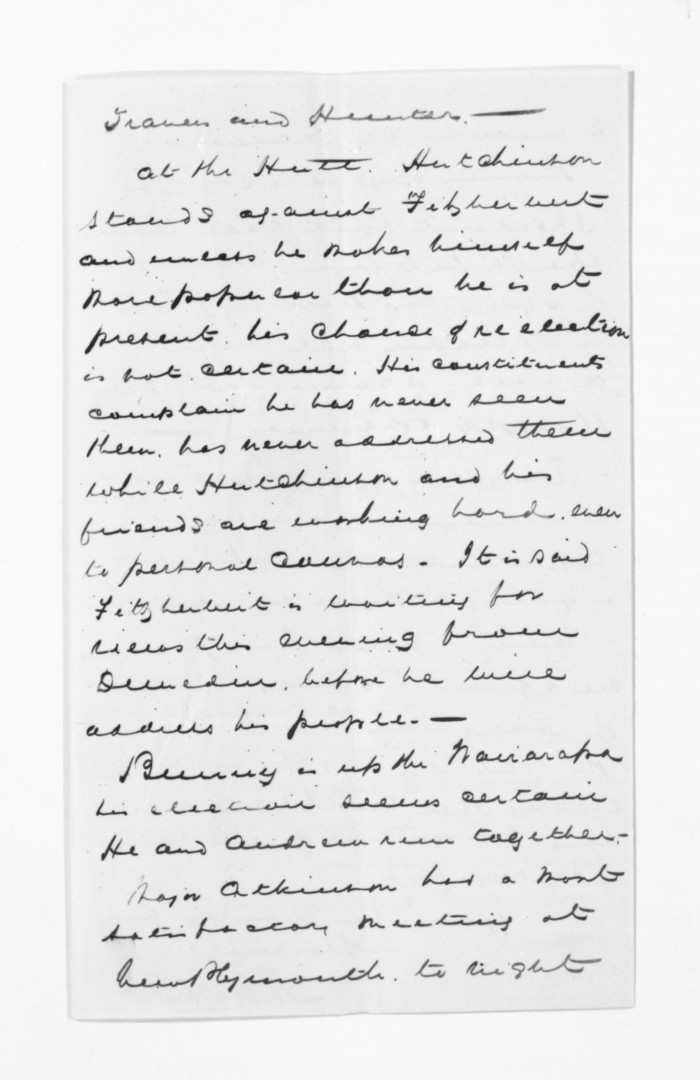 Travers and Hunter. —
at the Hutt. Hutchinson
stands against Fitzherbert
and unless he makes himself
more popular than he is at
present, his chance of re election
is not certain. His constituents
complain he has never seen
them, has never addressed them
while Hutchinson and his
friends are working hard, even
to personal canvas. It is said
Fitzherbert is waiting for
news this evening from
Dunedin, before he will
address his people. —
Bunny is up the Wairarapa
his election seems certain
He and Andrew run together. -
Major Atkinson had a most
satisfactory meeting at
New Plymouth. to night